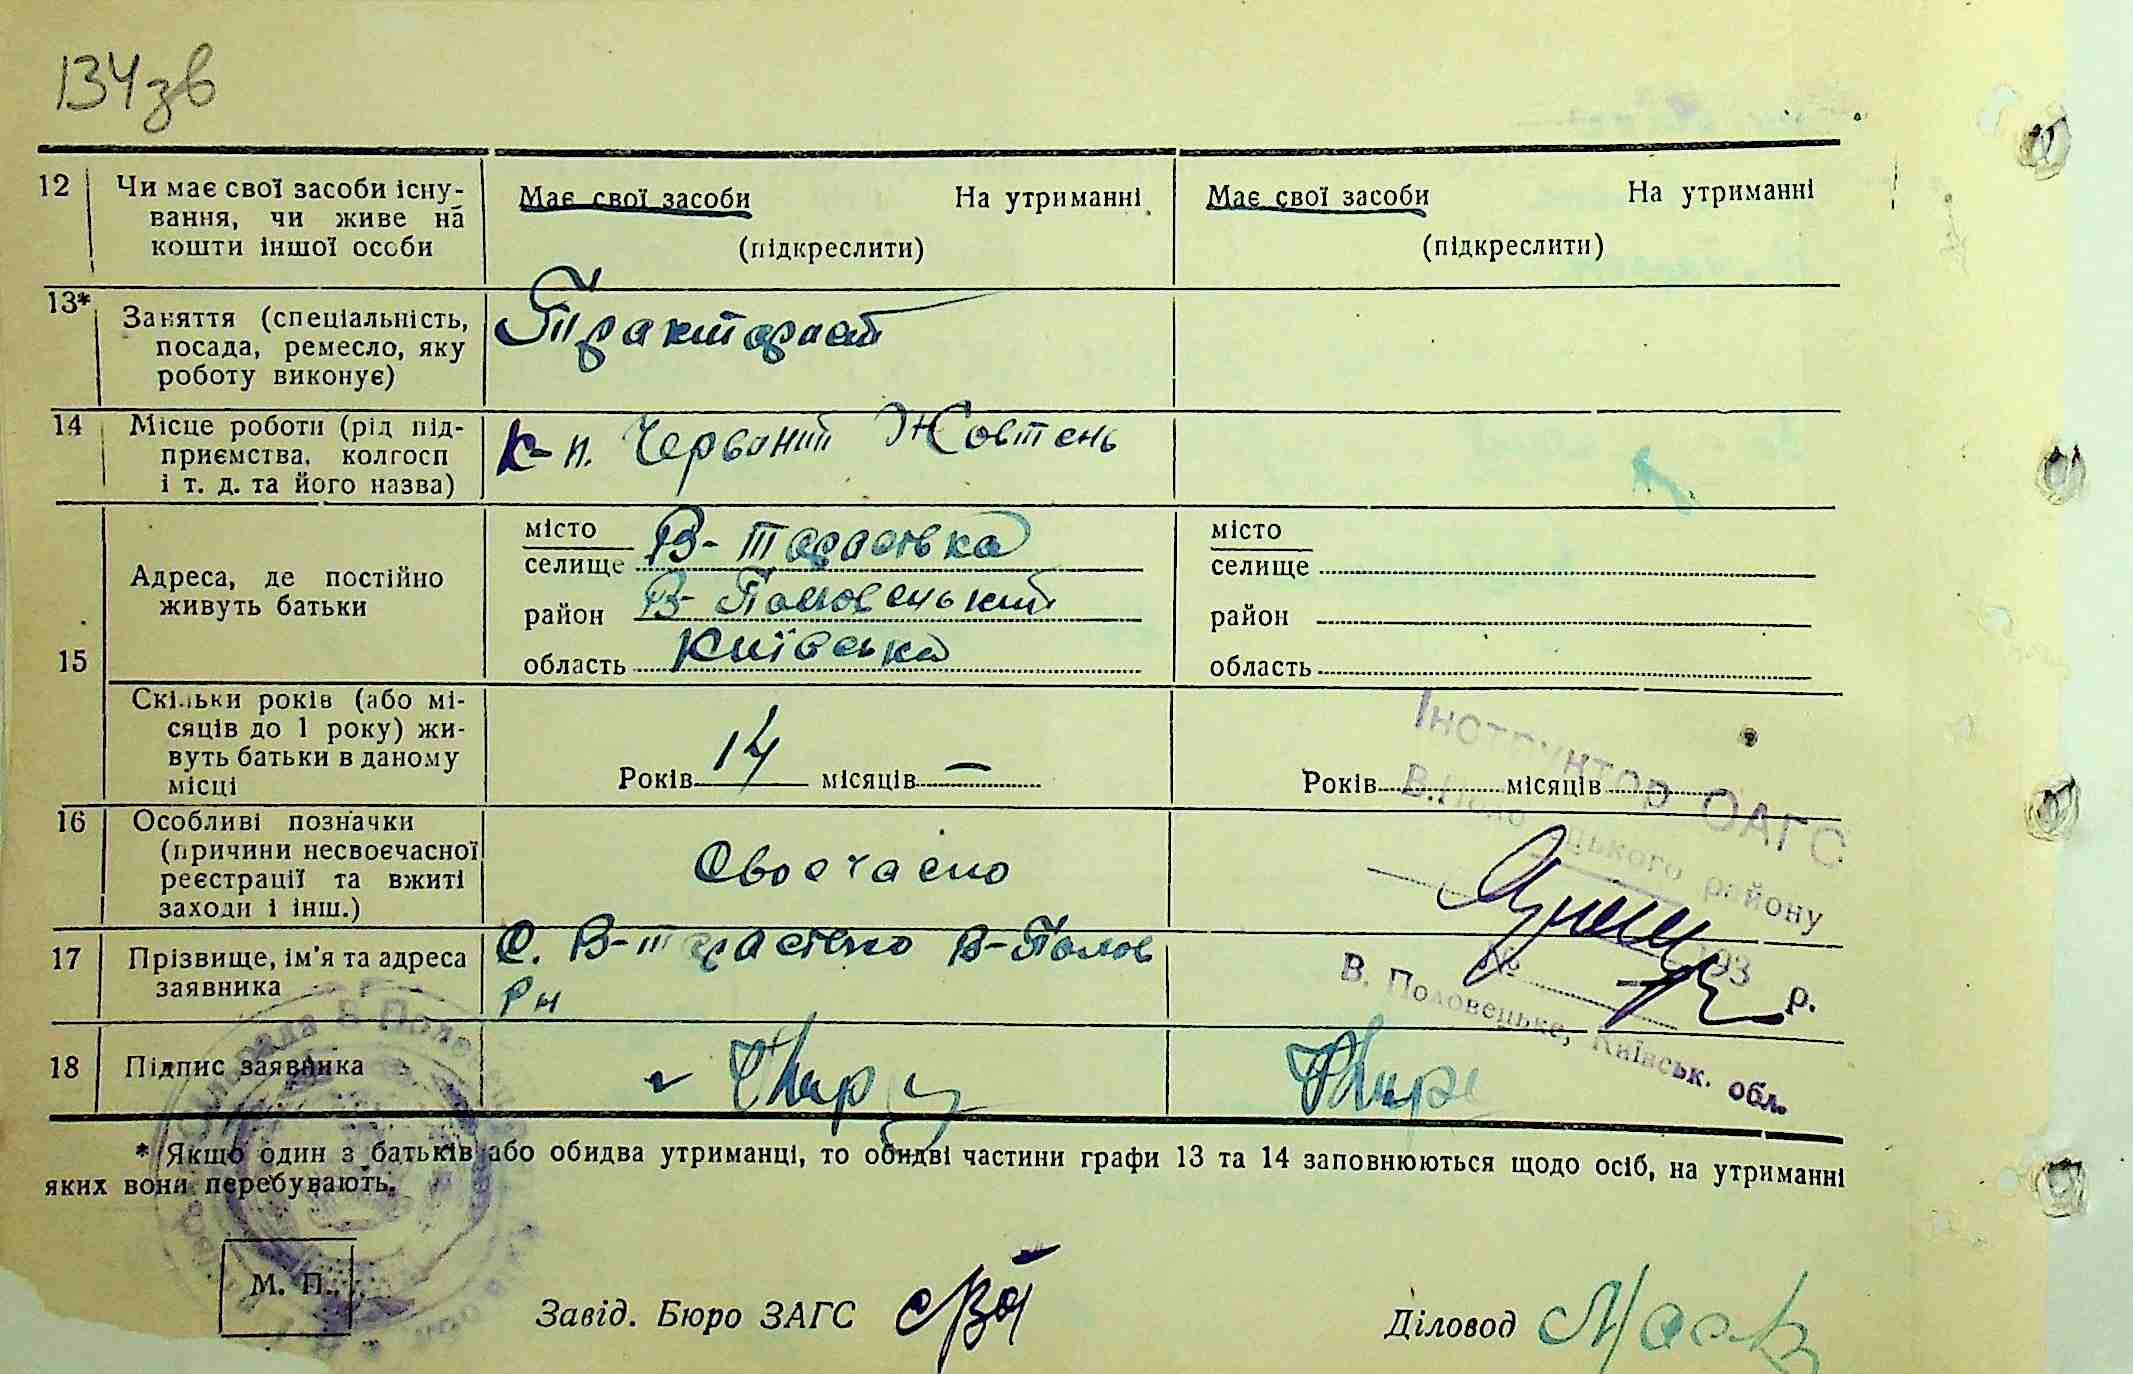 134зв
12 Чи має свої засоби існу- Має свої засоби На утриманні Має свої засоби На утриманні
вання, чи живе на
кошти іншої особи (підкреслити) (підкреслити)
13* Заняття (спеціальність, Тракторист
посада, ремесло, яку
роботу виконує)
14 Місце роботи (рід під- К-п. Червоний Жовтень
приємства, колгосп
і т. д. та його назва)
15 Адреса, де постійно
живуть батьки
місто
селище В-Тарасівка
район В-Половецький
область Київська
місто
селище
район
область
Скільки років (або мі-
сяців до 1 року) жи-
вуть батьки в даному
місці
Років 14 місяців —
Років місяців
Інструктор ОАГС
В.Половецького району
№ 193 р.
В. Половецьке, Київськ. обл.
16 Особливі позначки Своєчасно
(причини несвоєчасної
реєстрації та вжиті
заходи і інш.)
17 Прізвище, ім'я та адреса С. В-Тарасівка В-Полов
заявника Рн
18 Підпис заявника
* Якщо один з батьків або обидва утриманці, то обидві частини графи 13 та 14 заповнюються щодо осіб, на утриманні
яких вони перебувають.
М. П.
Завід. Бюро ЗАГС
Діловод